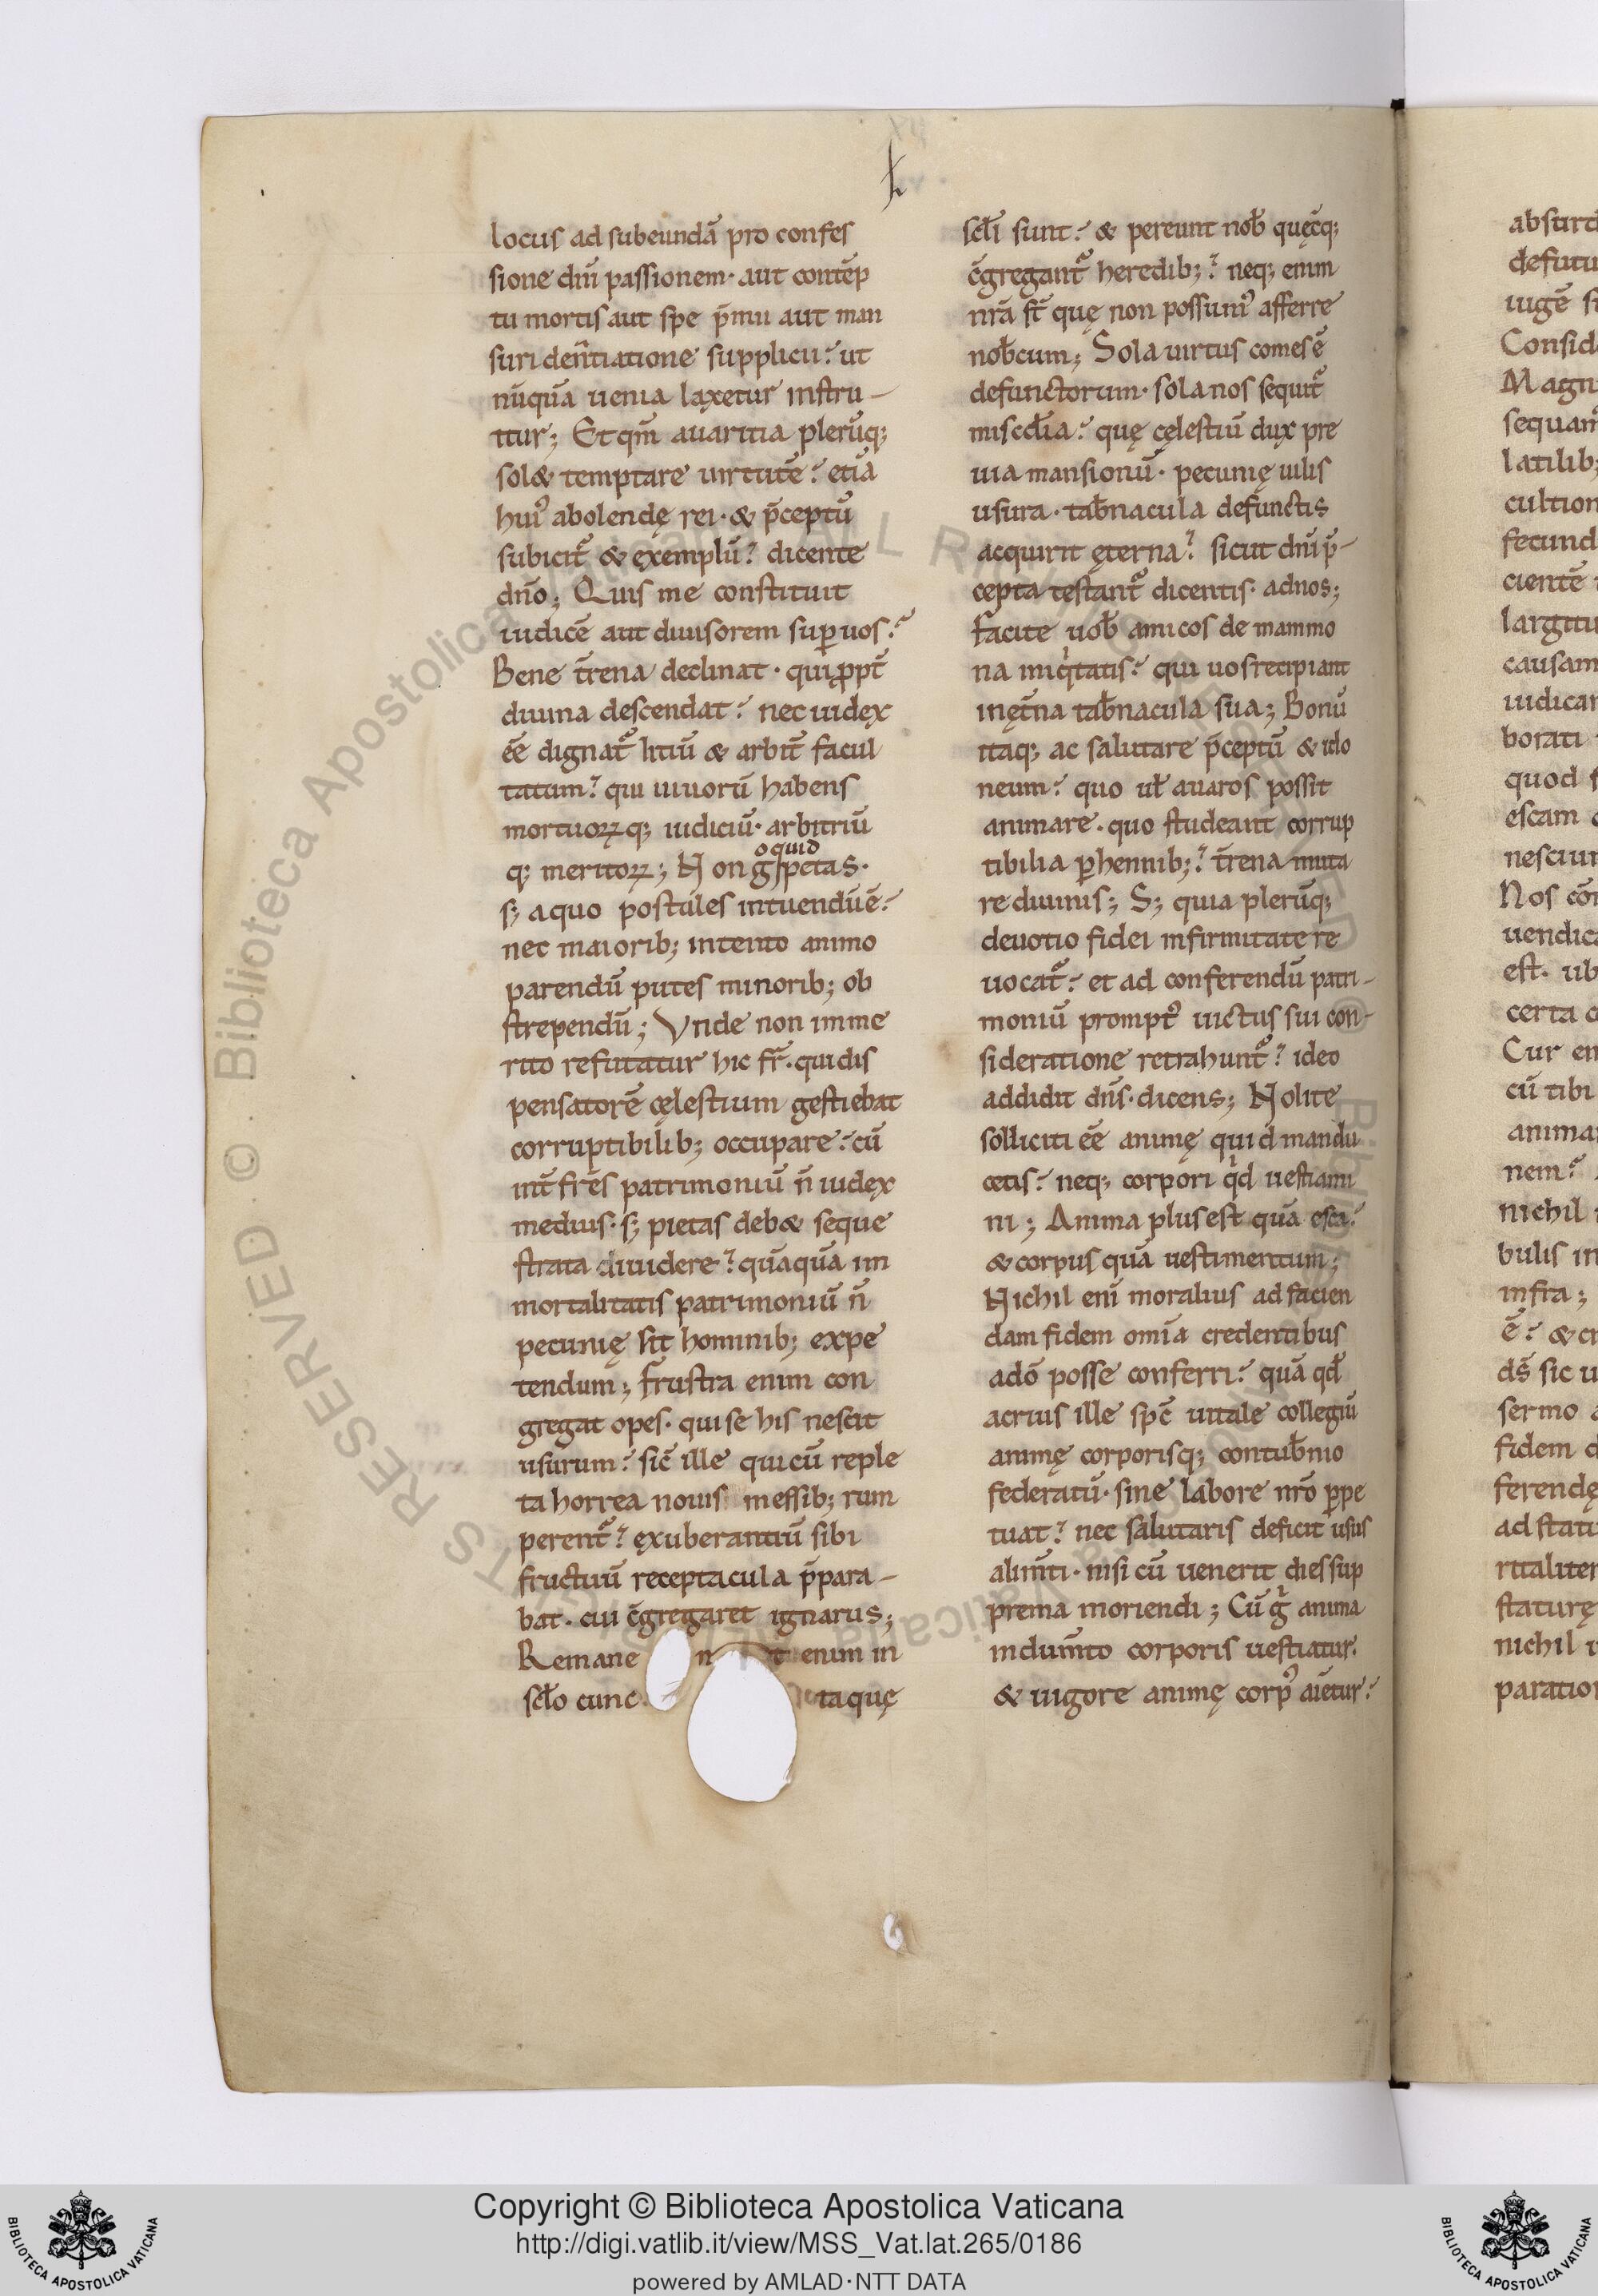 locus ad subeundā pro confes
sione dn̄i passionem · aut contēp
tu mortis aut spe p̄mii aut man
suri den̄tiatione supplicii? ut
nūquā uenia laxetur instru-
itur; Et qm̄ auaritia plerūq;
sol& temptare uirtutē? etiā
hui᷒ abolendę rei · & p̄ceptū
subicit᷑ & exemplū? dicente
dn̄o; Quis me constituit
iudicē aut diuisorem sup uos?
Bene t̄rena declinat · qui ꝓpt̄
diuina descendat? nec iudex
ēē dignat᷑ litiū & arbit̄ facul
tatum? qui uiuorū habens
mortuoꝝq; iudiciū · arbitriū
q; meritoꝝ; Non g petas ·
o quid
s; a quo postules intuendū ē?
nec maiorib; intento animo
parendū putes minorib; ob
strependū; Vnde non imme
rito refutatur hic fr̄ · qui dis
pensatorē cęlestium gestiebat
corruptibilib; occupare? cū
int̄ fr̄es patrimoniū n̄ iudex
medius · s; pietas deb& seque
strata diuidere? quāquā im
mortalitatis patrimoniū n̄
pecunię sit hominib; expe
tendum; Frustra enim con
gregat opes · qui se his nescit
usurum? sic̄ ille qui cū reple
ta horrea nouis messib; rum
perent᷑? exuberantiū sibi
fructuū receptacula p̄para-
bat · cui c̄gregaret ignarus;
Remane n t enim in
sc̄lo cunc ta quę
sc̄li sunt? & pereunt nob̄ quęcq;
c̄gregant᷑ heredib;? neq; enim
nr̄a st̄ quę non possum᷒ afferre
nob̄cum; Sola uirtus comes ē
defunctorum · sola nos sequit᷑
misc̄dia? quę cęlestiū dux pre
uia mansionū · pecunię uilis
usura · tab̄nacula defunctis
acquirit ęterna? sicut dn̄i p̄-
cepta testant᷑ dicentis · ad nos;
facite uob̄ amicos de mammo
na iniqⁱtatis? qui uos recipiant
in ęt̄na tab̄nacula sua; Bonū
itaq; ac salutare p̄ceptū & ido
neum? quo ul̄ auaros possit
animare · quo studeant corrup
tibilia ꝑhennib;? t̄rena muta
re diuinis; S; quia plerūq;
deuotio fidei infirmitate re
uocat᷑? et ad conferendū patri-
moniū prompt᷒ uictus sui con-
sideratione retrahunt᷑? ideo
addidit dn̄s · dicens; Nolite
solliciti ēē animę quid mandu
cetis? neq; corpori qⁱd uestiami
ni; Anima plus est quā esca?
& corpus quā uestimentum;
Nichil eni̅ moralius ad facien
dam fidem omīa credentibus
a dō posse conferri? quā qd̄
acrius ille sp̄c̄ uitale collegiū
animę corporisq; contub̄nio
federatū · sine labore nr̄o ꝑpe
tuat? nec salutaris deficit usus
alim̄ti · nisi cū uenerit dies sup
prema moriendi; Cū gⁱ anima
indum̄to corporis uestiatur ·
& uigore animę corp᷒ aiētur?
absurd
defutu
uigē si
Consid
Magn
sequam
latilib;
cultion
fecund
cientē
largitu
causam
iudicar
borati
quod
escam
nesciun
Nos cōm
uendica
est · ub
certa
Cur en
cū tibi
animar
nem?
nichil
bulis in
infra;
ē? & cr
ds̄ sic u
sermo
fidem
ferendę
ad statu
ritaliter
staturę
nichil
paration
© Biblioteca Apostolica Vaticana ALL RIGHTS RESERVED
Copyright © Biblioteca Apostolica Vaticana
http://digi.vatlib.it/view/MSS_Vat.lat.265/0186
powered by AMLAD·NTT DATA
BIBLIOTECA APOSTOLICA VATICANA
BIBLIOTECA APOSTOLICA VATICANA